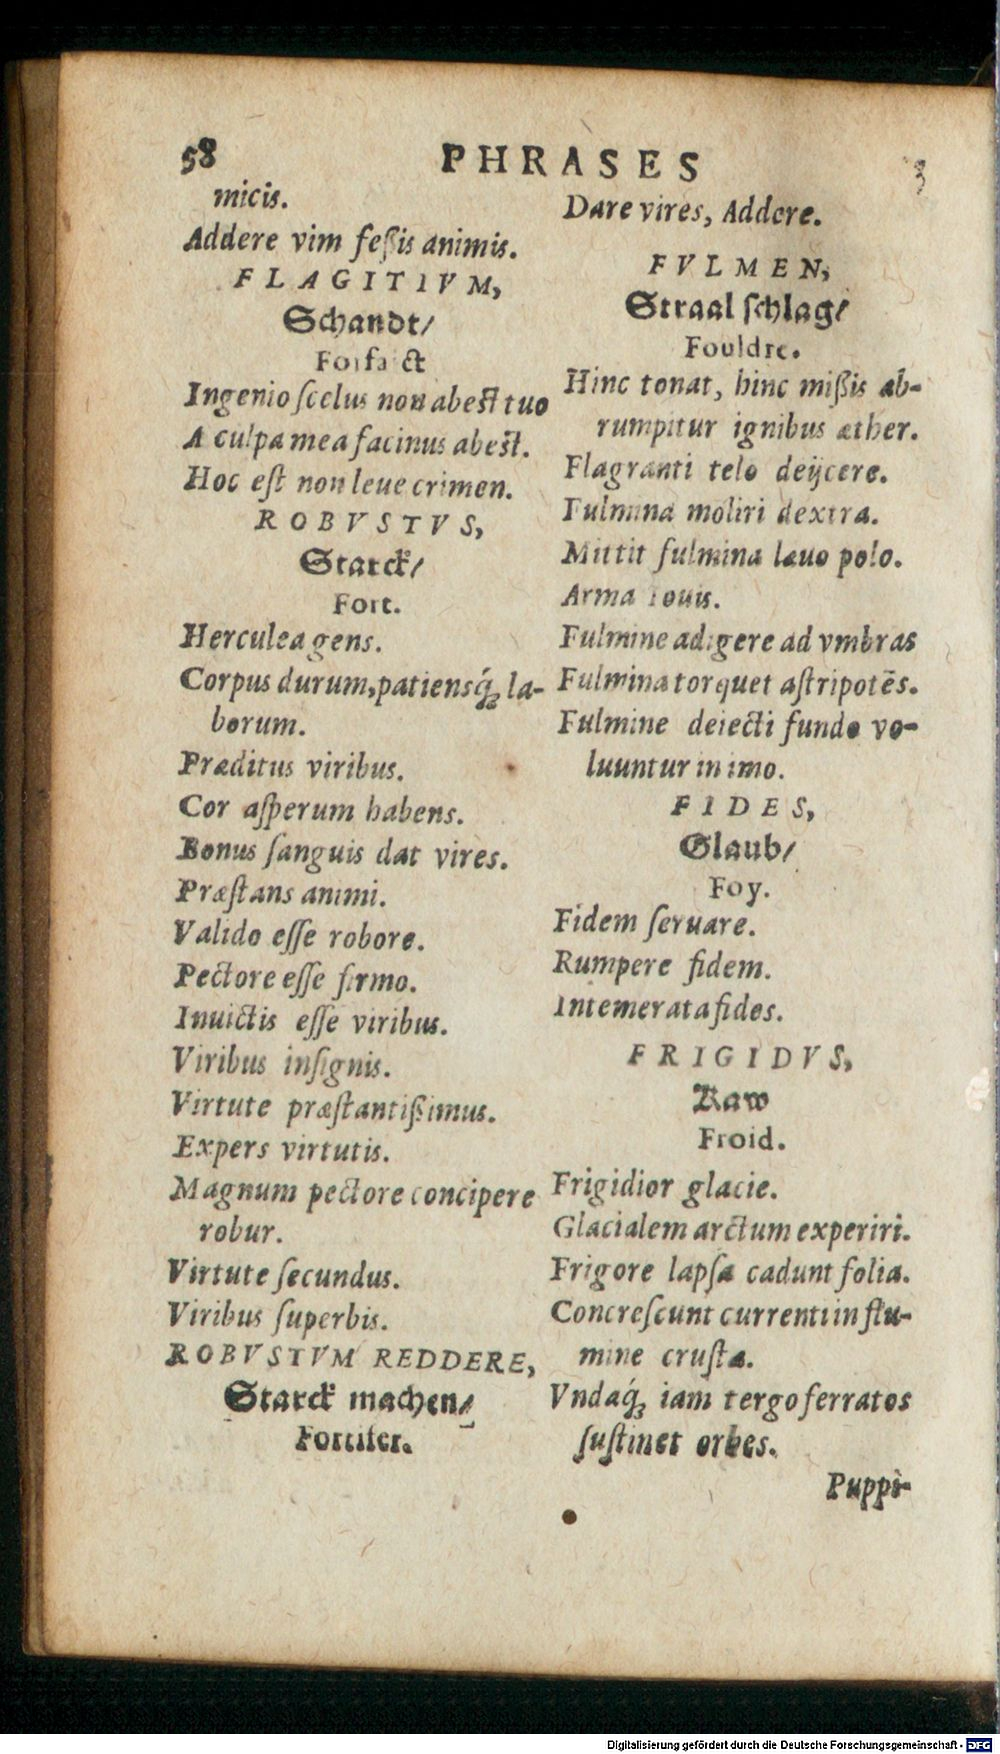 58
PHRASES
micis.
Addere vim feßis animis.
FLAGITIVM,
Schandt/
Forfaict
Ingenio ſcelus non abest tuo
A culpa mea facinus abest.
Hoc eſt non leue crimen.
ROBVSTVS,
Starck/
Fort.
Herculea gens.
Corpus durum, patiensq́ꝫ la-
borum.
Præditus viribus.
Cor aſperum habens.
Bonus ſanguis dat vires.
Præſtans animi.
Valido eſſe robore.
Pectore eſſe firmo.
Inuictis eſſe viribus.
Viribus inſignis.
Virtute præſtantißimus.
Expers virtutis.
Magnum pectore concipere
robur.
Virtute ſecundus.
Viribus ſuperbis.
ROBVSTVM REDDERE,
Starck machen/
Fortifer.
Dare vires, Addere.
FVLMEN,
Straal ſchlag/
Fouldre.
Hinc tonat, hinc mißis ab-
rumpitur ignibus æther.
Flagranti telo deijcere.
Fulmina moliri dextra.
Mittit fulmina læuo polo.
Arma Iouis.
Fulmine adigere ad vmbras
Fulmina torquet aſtripotēs.
Fulmine deiecti fundo vo-
luuntur in imo.
FIDES,
Glaub/
Foy.
Fidem ſeruare.
Rumpere fidem.
Intemerata fides.
FRIGIDVS,
Kaw
Froid.
Frigidior glacie.
Glacialem arctum experiri.
Frigore lapſa cadunt folia.
Concreſcunt currenti in flu-
mine cruſta.
Vndaq́ꝫ iam tergo ferratos
ſuſtinet orbes.
Puppi-
Digitalisierung gefördert durch die Deutsche Forschungsgemeinschaft - DFG